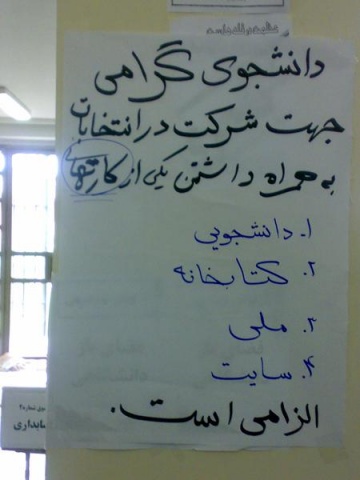 دانشجوی گرامی
جهت شرکت در انتخابات
به همراه داشتن یکی از کارتهای
۱. دانشجویی
۲. کتابخانه
۳. ملی
۴. سایت
الزامی است.